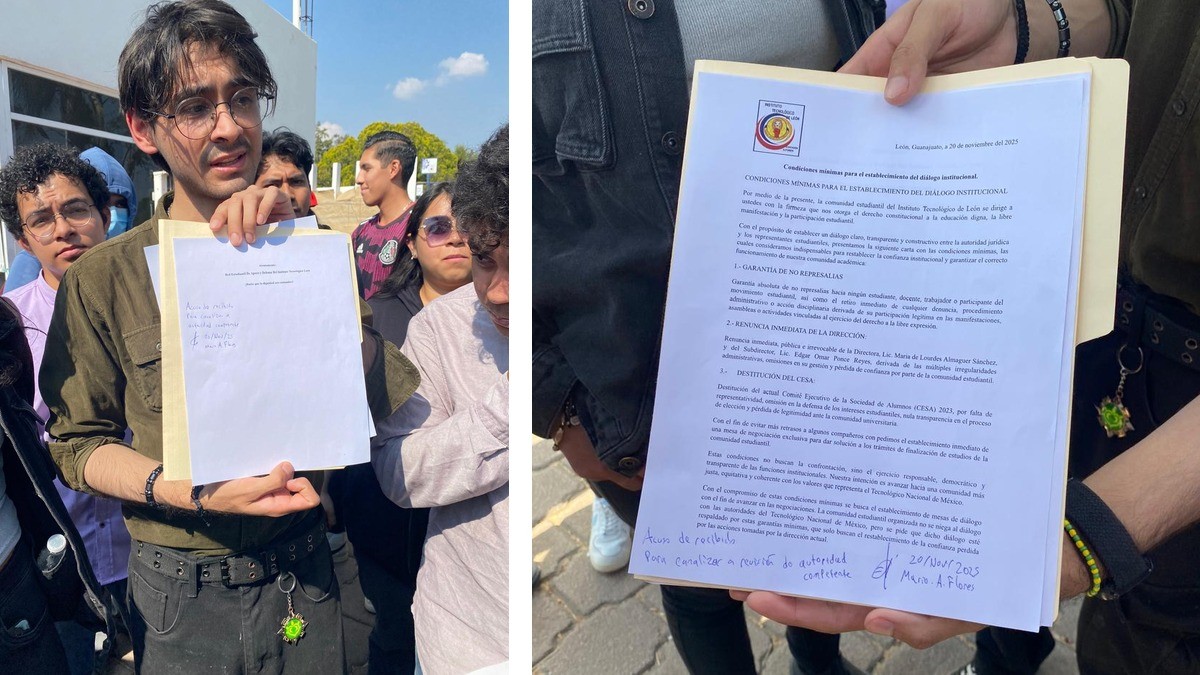 Acuso de recibido
Para canalizar a
autoridad competente
20/Nov/25
Mario. A. Flores
INSTITUTO
TECNOLÓGICO
DE LEÓN
León, Guanajuato, a 20 de noviembre del 2025
Condiciones mínimas para el establecimiento del diálogo institucional.
CONDICIONES MÍNIMAS PARA EL ESTABLECIMIENTO DEL DIÁLOGO INSTITUCIONAL
Por medio de la presente, la comunidad estudiantil del Instituto Tecnológico de León se dirige a
ustedes con la firmeza que nos otorga el derecho constitucional a la educación digna, la libre
manifestación y la participación estudiantil.
Con el propósito de establecer un diálogo claro, transparente y constructivo entre la autoridad jurídica
y los representantes estudiantiles, presentamos la siguiente carta con las condiciones mínimas, las
cuales consideramos indispensables para restablecer la confianza institucional y garantizar el correcto
funcionamiento de nuestra comunidad académica:
1.- GARANTÍA DE NO REPRESALIAS
Garantía absoluta de no represalias hacia ningún estudiante, docente, trabajador o participante del
movimiento estudiantil, así como el retiro inmediato de cualquier denuncia, procedimiento
administrativo o acción disciplinaria derivada de su participación legítima en las manifestaciones,
asambleas o actividades vinculadas al ejercicio del derecho a la libre expresión.
2.- RENUNCIA INMEDIATA DE LA DIRECCIÓN:
Renuncia inmediata, pública e irrevocable de la Directora, Lic. Maria de Lourdes Almaguer Sánchez,
y del Subdirector, Lic. Edgar Omar Ponce Reyes, derivada de las múltiples irregularidades
administrativas, omisiones en su gestión y pérdida de confianza por parte de la comunidad estudiantil.
3.- DESTITUCIÓN DEL CESA:
Destitución del actual Comité Ejecutivo de la Sociedad de Alumnos (CESA) 2023, por falta de
representatividad, omisión en la defensa de los intereses estudiantiles, nula transparencia en el proceso
de elección y pérdida de legitimidad ante la comunidad universitaria.
Con el fin de evitar más retrasos a algunos compañeros con pedimos el establecimiento inmediato de
una mesa de negociación exclusiva para dar solución a los trámites de finalización de estudios de la
comunidad estudiantil.
Estas condiciones no buscan la confrontación, sino el ejercicio responsable, democrático y
transparente de las funciones institucionales. Nuestra intención es avanzar hacia una comunidad más
justa, equitativa y coherente con los valores que representa el Tecnológico Nacional de México.
Con el compromiso de estas condiciones mínimas se busca el establecimiento de mesas de diálogo
con el fin de avanzar en las negociaciones. La comunidad estudiantil organizada no se niega al diálogo
con las autoridades del Tecnológico Nacional de México, pero se pide que dicho diálogo esté
respaldado por estas garantías mínimas, que solo buscan el restablecimiento de la confianza perdida
por las acciones tomadas por la dirección actual.
Acuso de recibido
Para canalizar a revisión de autoridad
competente
20/Nov/2025
Mario. A. Flores